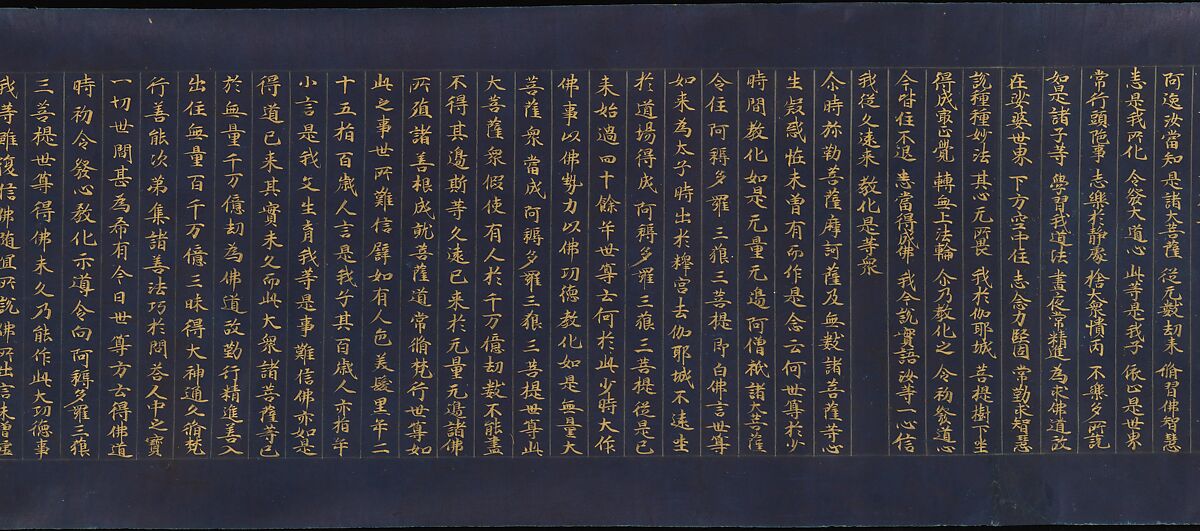 阿逸汝當知 是諸大菩薩 從无數劫来 脩習佛智慧
悉是我所化 令發大道心 此等是我子 依止是世界
常行頭陁事 志樂於静處 捨大衆憒丙 不樂多所説
如是諸子等 學習我道法 晝夜常精進 為求佛道故
在娑婆世界 下方空中住 志念力堅固 常勤求智慧
説種種妙法 其心无所畏 我於伽耶城 菩提樹下坐
得成最正覺 轉無上法輪 尒乃教化之 令初發道心
今皆住不退 悉當得成佛 我今説實語 汝等一心信
我從久遠来 教化是等衆
尒時弥勒菩薩摩訶薩及無數諸菩薩等心
生疑惑怪未曽有而作是念云何世尊於少
時間教化如是无量无邊阿僧祇諸大菩薩
令住阿耨多羅三藐三菩提即白佛言世尊
如来為太子時出於釋宫去伽耶城不遠坐
於道場得成阿耨多羅三藐三菩提從是已
来始過四十餘年世尊云何於此少時大作
佛事以佛勢力以佛功德教化如是無量大
菩薩衆當成阿耨多羅三藐三菩提世尊此
大菩薩衆假使有人於千万億劫數不能盡
不得其邊斯等久遠已来於无量无邊諸佛
所殖諸善根成就菩薩道常脩梵行世尊如
此之事世所難信譬如有人色美髮黒年二
十五指百歳人言是我子其百歳人亦指年
小言是我父生育我等是事難信佛亦如是
得道已来其實未久而此大衆諸菩薩等已
於無量千万億劫為佛道故勤行精進善入
出住無量百千万億三昧得大神通久脩梵
行善能次第集諸善法巧於問荅人中之寶
一切世間甚為希有今日世尊方云得佛道
時初令發心教化示導令向阿耨多羅三藐
三菩提世尊得佛未久乃能作此大功德事
我等雖復信佛随宜所説佛所出言未曽虚